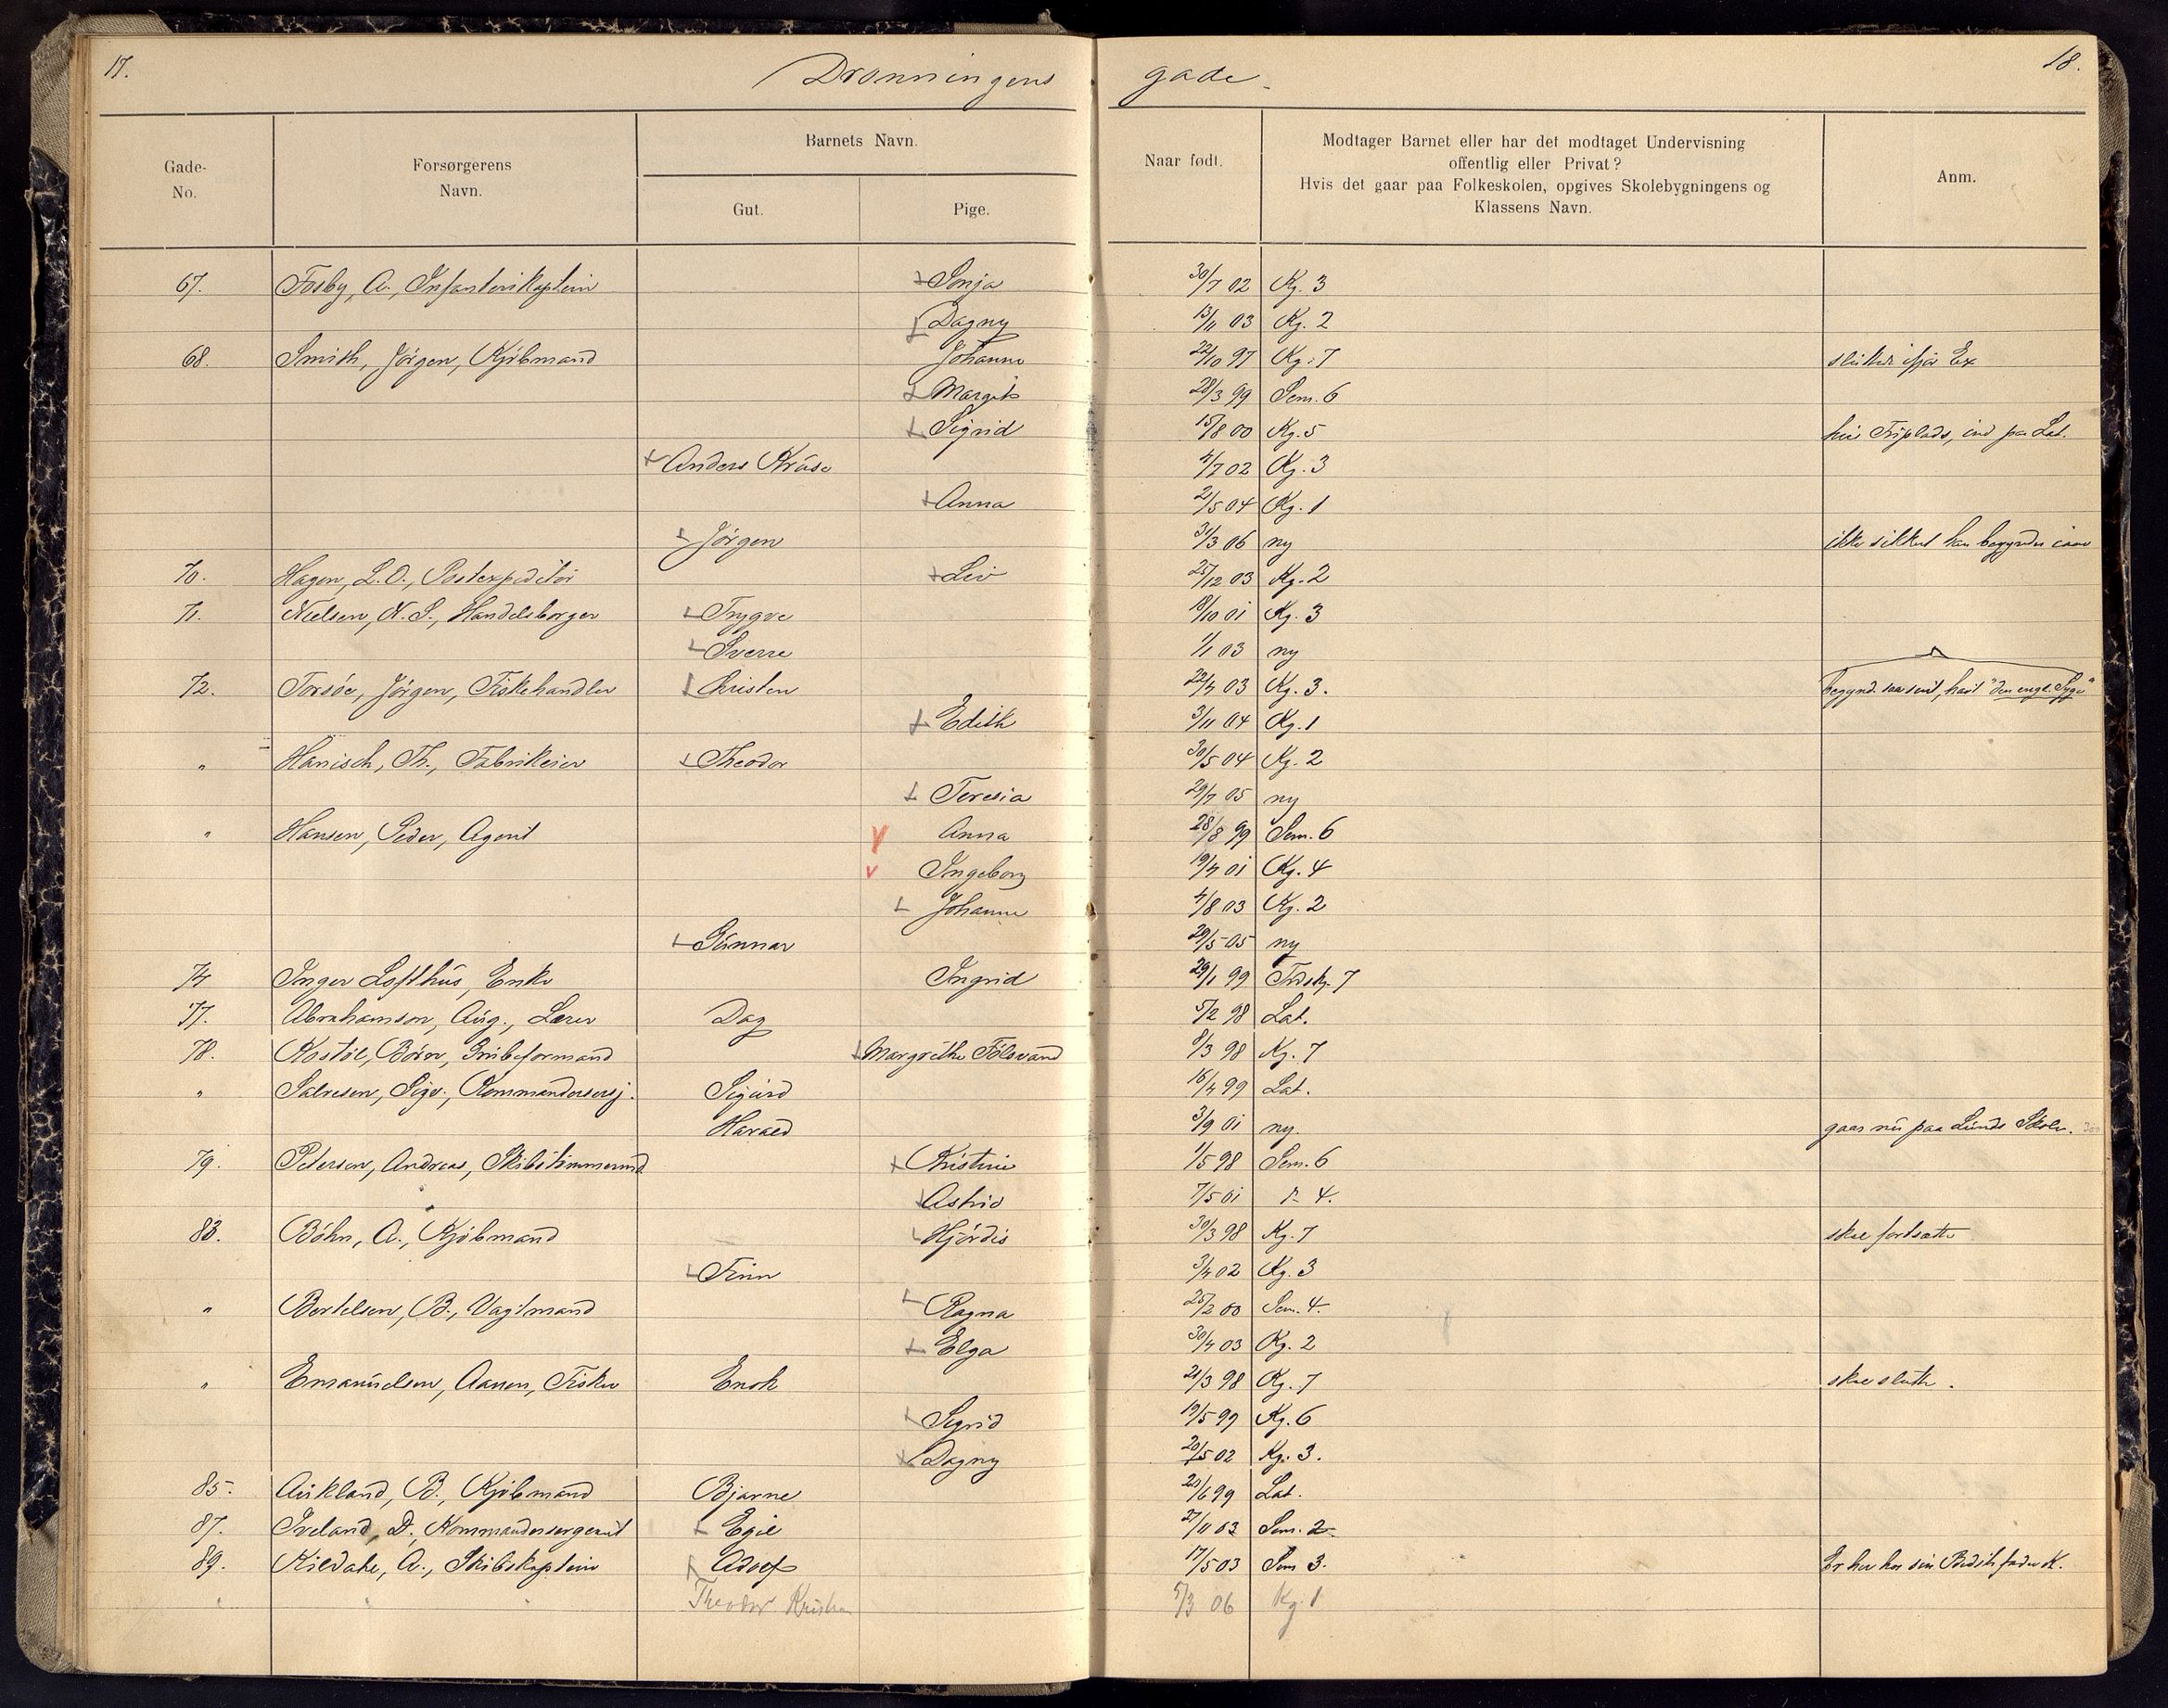 17.
Dronningens gade.
18.
Gade-No. Forsørgerens Navn. Barnets Navn. Gut. Pige. Naar født. Modtager Barnet eller har det modtaget Undervisning offentlig eller Privat? Hvis det gaar paa Folkeskolen, opgives Skolebygningens og Klassens Navn. Anm.
67. Fosby, A., Infanterikaptein Sonja 30/7 02 Kg. 3
Dagny 13/11 03 Kg. 2
68. Smith, Jörgen, Kjöbmand Johanne 22/10 97 Kg. 7 Ex
Margit 28/3 99 Sem. 6
Sigrid 15/8 00 Kg. 5 Friplads, ind paa Lat.
Anders Kruse 4/7 02 Kg. 3
Anna 2/5 04 Kg. 1
Jörgen 31/3 06 ny ikke sikkert han begynder iaar
70. Hagen, L. O., Postexpeditör Liv 25/12 03 Kg. 2
71. Nielsen, N. S., Handelsborger Trygve 18/10 01 Kg. 3
Sverre 1/1 03 ny
72. Torsöe, Jörgen, Fiskehandler Kristen 22/4 03 Kg. 3. begynd. saa sent, havt "den engl. Syge"
Edith 3/11 04 Kg. 1
" Hanisch, Th., Fabrikeier Theodor 30/5 04 Kg. 2
Teresia 29/7 05 ny
" Hansen, Peder, Agent Anna 28/8 99 Sem. 6
Ingeborg 19/4 01 Kg. 4
Johanne 4/8 03 Kg. 2
Gunnar 29/5 05 ny
74 Inger Lofthus, Enke Ingrid 29/1 99 7
77. Abrahamson, Aug., Lærer Dag 5/2 98 Lat.
78. Rostöl, Börn, Grubeformand Margrethe Fölsvand 8/3 98 Kg. 7
" Salvesen, Sigv., Kommandersersj. Sigurd 16/4 99 Lat.
Harald 3/9 01 ny. gaar nu paa Lunds Skole.
79. Petersen, Andreas, Skibstimmermd. Kristine 1/5 98 Sem. 6
Astrid 7/5 01 4.
83. Böhn, A., Kjöbmand Hjördis 30/3 98 Kg. 7 skal fortsætte
Finn 3/4 02 Kg. 3
" Bertelsen, B., Vagtmand Ragna 25/2 00 Sem. 4.
Elga 30/4 03 Kg. 2
" Emanuelsen, Aanen, Fisker Enok 21/3 98 Kg. 7 skal slutte.
Sigrid 19/5 99 Kg. 6
Dagny 20/5 02 Kg. 3.
85. Aukland, B., Kjöbmand Bjarne 20/6 99 Lat.
87. Iveland, D., Kommandersergeant Egil 27/11 03 Sem. 2
89. Kildahl, A., Skibskaptein Adolf 17/5 03 Sem 3. Er her hos sin Bedstefader K.
" " " Theodor Kristian 5/3 06 Kg. 1